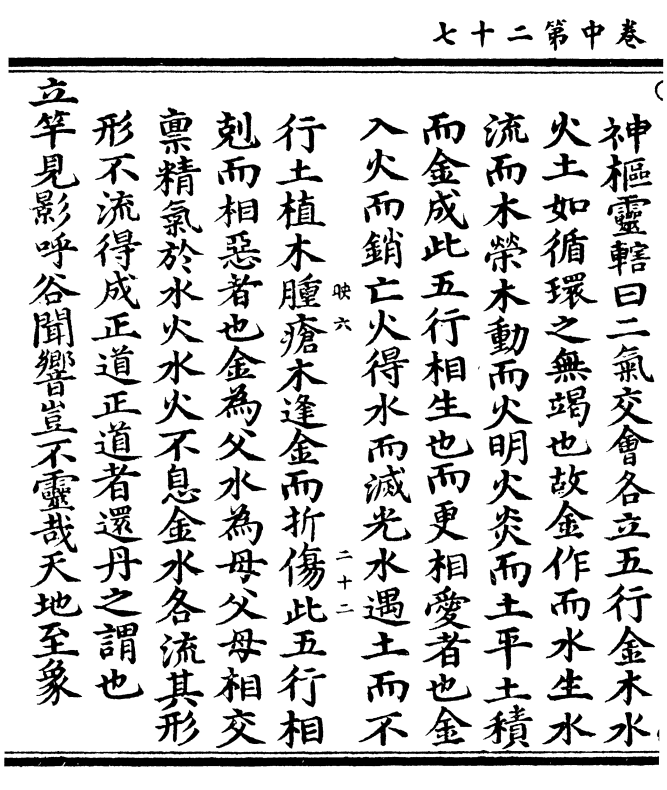 卷中第二十七
神樞靈轄曰二氣交會各立五行金木水
火土如循環之無竭也故金作而水生水
流而木榮木動而火明火炎而土平土積
而金成此五行相生也而更相愛者也金
入火而銷亡火得水而滅光水遇土而不
映六 二十二
行土植木腫瘡木逢金而折傷此五行相
剋而相惡者也金為父水為母父母相交
禀精氣於水火水火不息金水各流其形
形不流得成正道正道者還丹之謂也
立竿見影呼谷聞響豈不靈哉天地至象